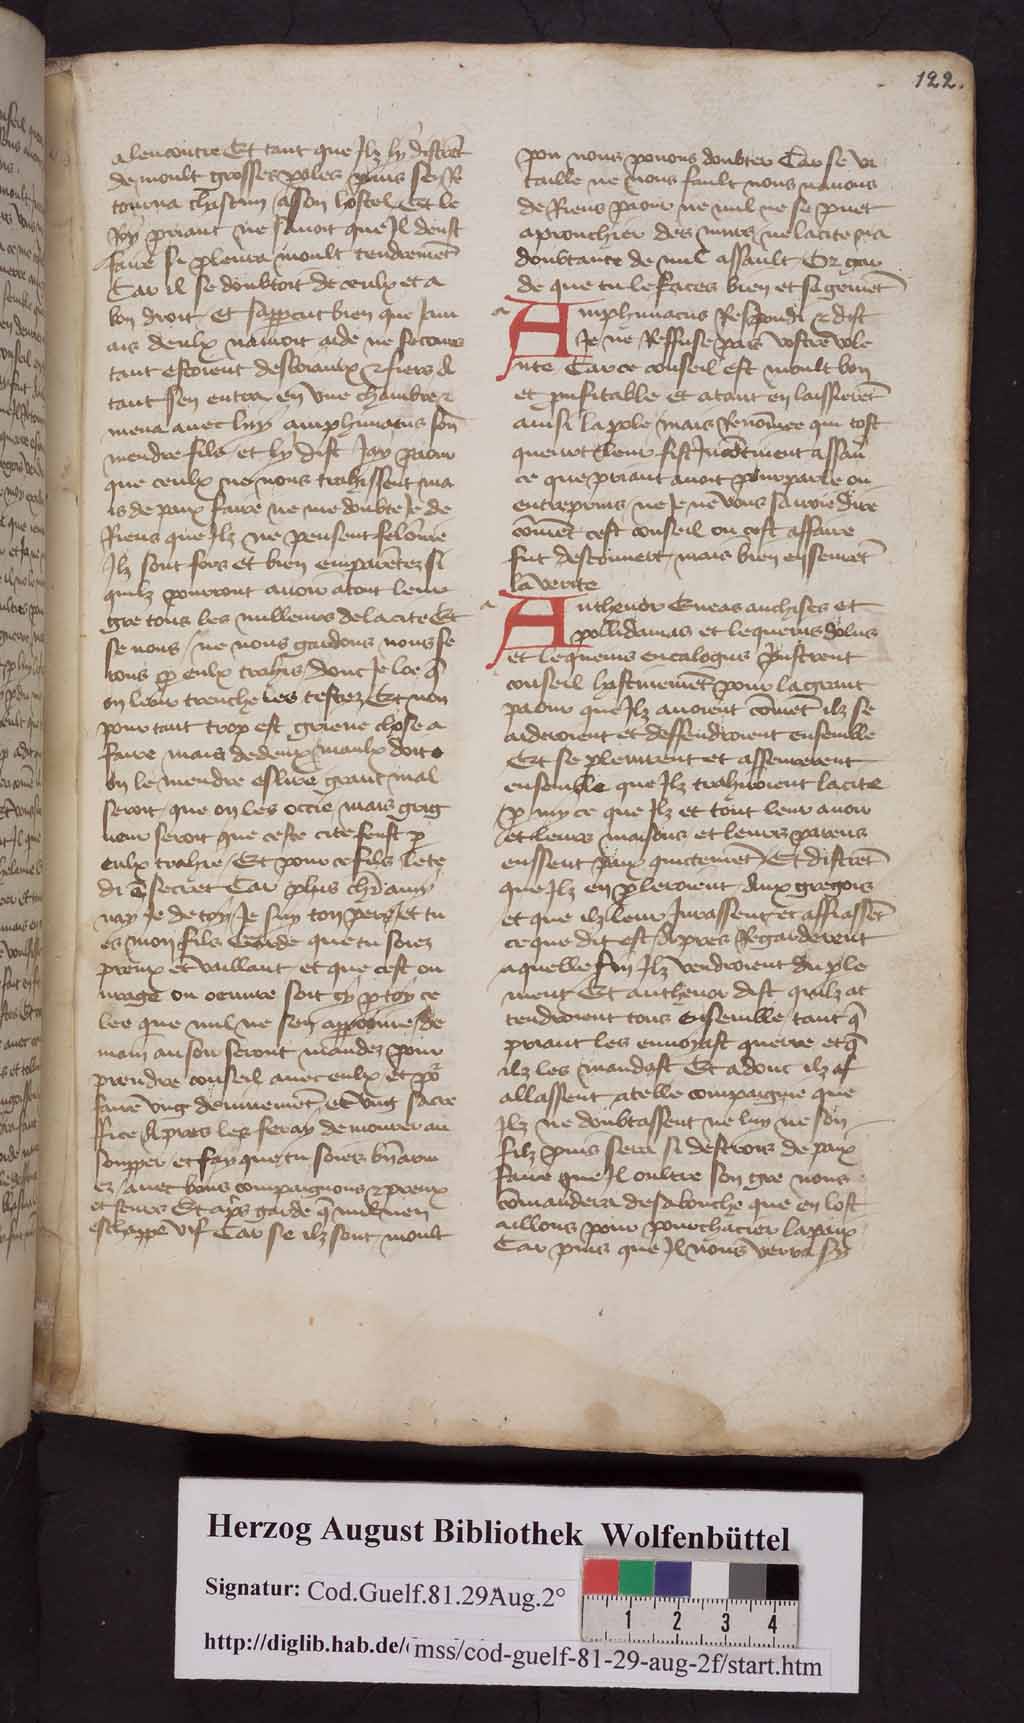 122.
alencontre Et tant que Ilz ly distrēt
de moult grosses poles puis se R
tourna chascun asson hostel Et le
Roy priant ne sauoit que Il deust
faire si pleura moult tendremēt
Car il se doubtoit de ceulx et a
bon droit et sapperceut bien que Jam
ais deulx nauroit aide ne secours
tant estoient desloiaulx et fiers &
tant sen entra en vne chambre et
mena auec luy amphimacus son
mendre fils et ly dist Jay paour
que ceulx ne nous trahissent ma
is de paix faire ne me doubte Je de
Riens que Ilz ne pensent felonie
Ilz sont fors et bien emparētez si
quilz pourront auoir atout leur
gre tous les milleurs de la cite Et
se nous ne nous gardons nous se
rons p eulx trahis donc Je loe q̄
on leur trenche les testez Et non
pour tant trop est grieue chose a
faire mais de deux maulx doit
on le mendre eslire grant mal
seroit que on les occie mais greig
neur seroit que ceste cite feust p
eulx trahie Et pour ce fils Je te
di ē secret Car plus chr̄ amy
nay Je de toy Je suy ton pere et tu
es mon fils Garde que tu soiez
preux et vaillant et que cest ou
urage ou oeuure soit sy p toy ce
lee que nul ne sen appercoiue de
main au soir seront mandez pour
prendre conseil auec eulx et po
faire vng deuinemēt et vng sacre
ffice Apres les feray demourer au
soupper et fay que tu soies bn̄ arm
ez auec bons compaignons et preux
et seurs Et apr̄s garde q̄ nul nen
eschappe vif Car se ilz sont moult
pou nous pouons doubter Car se vi
taille ne nous fault nous nauons
de Riens paour ne nul ne se puet
aprouchier des murs ne la cite na
doubtance de nul assault Or gar
de que tu le faces bien et sagemēt
a Amphimacus Respondi et dist
Je ne Reffuse pas vostre vole
nte Car ce conseil est moult bon
et prufitable et atant en laissierēt
ainsi la pole mais Renōmee qui tost
queurt leur fist Incōtinent assau
ce que priant auoit pourparle ou
entreprins ne Je ne vous sauroie dire
comēt cest conseil ou cest affaire
fut descouuert mais bien en semēt
la verite
a Anthenor Eneas anchises et
pollidamas et lequeuis dolus
et lequeuis encalogus prinstrent
conseil hastiuemēt pour la grant
paour que Ilz auoient comēt ilz se
aideroient et deffendroient ensemble
Et se pleuirent et asseurerent
ensemble que Ilz trahiroient la cite
p my ce que Ilz et tout leur auoir
et leurs maisons et leurs parens
eussent paix quictemēt Et distrēt
que Ilz en pleroient Aux gregois
et que ilz leur Jurassent et affiassēt
ce que dit est Apres Regarderent
a quelle fin Ilz vendroient du ple
ment Et anthenor dist quilz at
tendroient tous ensemble tant q̄
priant les enuoyast querre et q̄
ilz les mandast Et adonc ilz af
allassent a telle compaignie que
Ilz ne doubtassent ne luy ne son
filz puis sera si destrois de paix
faire que Il oultre son gre nous
cōmandera de sa bouche que en lost
aillons pour pourchacier la paix
Car puis que Il nous verra sy
Herzog August Bibliothek Wolfenbüttel
Signatur: Cod.Guelf.81.29Aug.2°
http://diglib.hab.de/mss/cod-guelf-81-29-aug-2f/start.htm
1 2 3 4